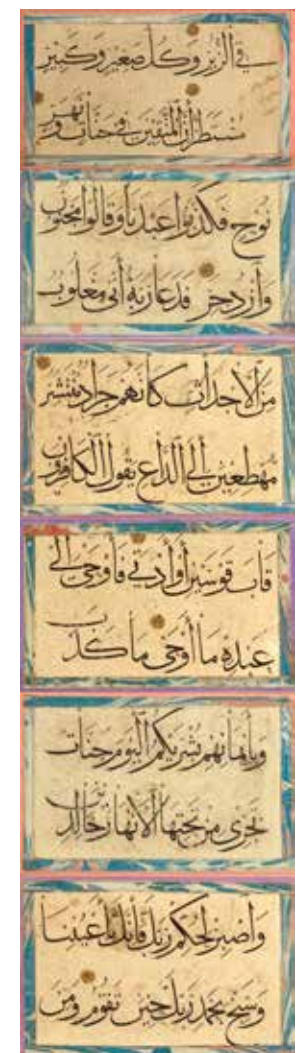 في الزبر وكل صغير وكبير
مستطر ان المتقين في جنات ونهر
نوح فكذبوا عبدنا وقالوا مجنون
وازدجر فدعا ربه أنى مغلوب
من الأجداث كأنهم جراد منتشر
مهطعين إلى الداع يقول الكافرون
قاب قوسين أو أدنى فأوحى إلى
عبده ما أوحى ما كذب
وبأيمانهم بشريكم اليوم جنات
تجري من تحتها الأنهار خالدين
واصبر لحكم ربك فانك بأعيننا
وسبح بحمد ربك حين تقوم ومن